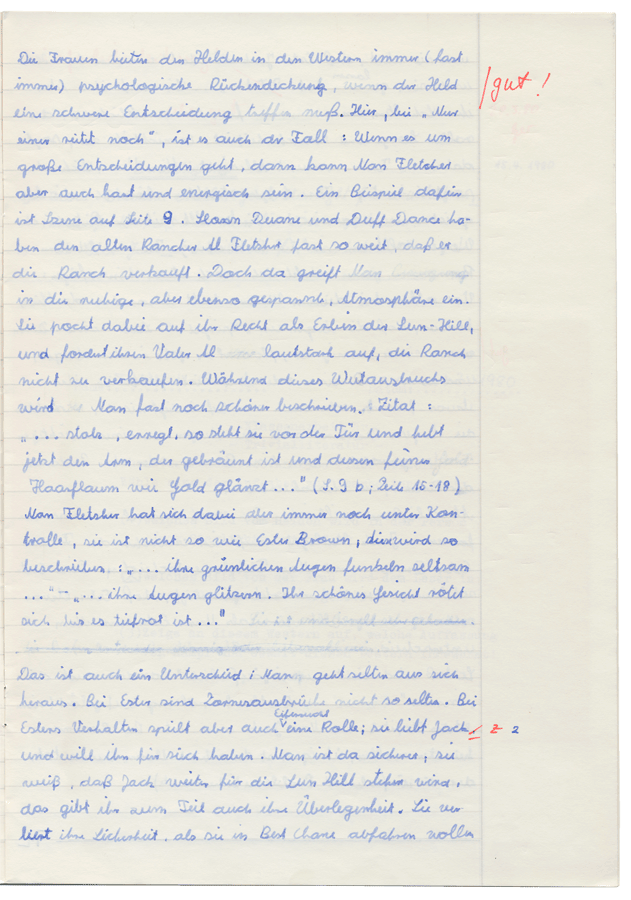 Die Frauen bieten den Helden in den Western immer (fast
immer) psychologische Rückendeckung, wenn der Held
eine schwere Entscheidung treffen muß. Hier, bei „Nur
einer reitet noch", ist es auch der Fall: Wenn es um
große Entscheidungen geht, dann kann Man Fletcher
aber auch hart und energisch sein. Ein Beispiel dafür
ist Szene auf Seite 9. Sloan Duane und Duff Dance ha-
ben den alten Rancher Al Fletcher fast so weit, daß er
die Ranch verkauft. Doch da greift Man
in die ruhige, aber ebenso gespannte, Atmosphäre ein.
Sie pocht dabei auf ihr Recht als Erbin der Sun-Hill,
und fordert ihren Vater Al lautstark auf, die Ranch
nicht zu verkaufen. Während dieses Wutausbruchs
wird Man fast noch schöner beschrieben. Zitat:
„... stolz, erregt, so steht sie vor der Tür und hebt
jetzt den Arm, der gebräunt ist und dessen feiner
Haarflaum wie Gold glänzt..." (S. 9 b; Zeile 15-18)
Man Fletcher hat sich dabei aber immer noch unter Kon-
trolle, sie ist nicht so wie Ester Brown, diese wird so
beschrieben: „... ihre grünlichen Augen funkeln seltsam
..." – „... ihre Augen glitzern. Ihr schönes Gesicht rötet
sich bis es tiefrot ist..."
Das ist auch ein Unterschied: Man geht selten aus sich
heraus. Bei Ester sind Zornesausbrüche nicht so selten. Bei
Eifersucht
Esters Verhalten spielt aber auch eine Rolle; sie liebt Jack
und will ihn für sich haben. Man ist da sicherer, sie
weiß, daß Jack weiter für die Sun Hill stehen wird,
das gibt ihr zum Teil auch ihre Überlegenheit. Sie ver-
liert ihre Sicherheit, als sie in Best Chane abfahren wollen
/gut!
Z 2